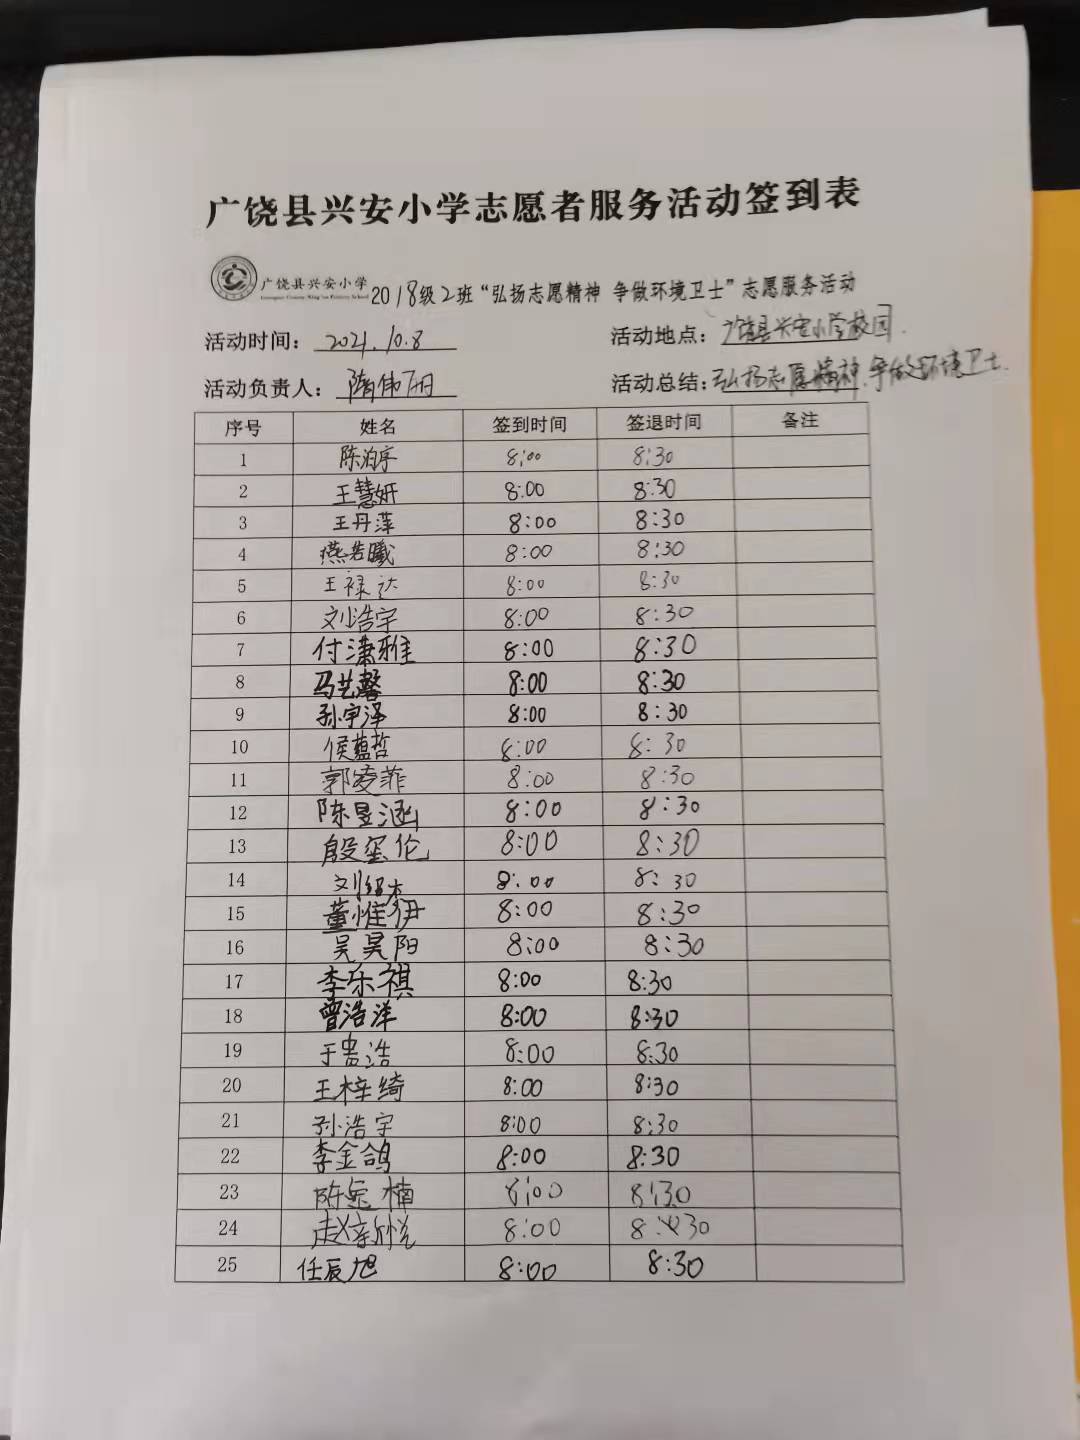 广饶县兴安小学志愿者服务活动签到表
广饶县兴安小学 2018级2班“弘扬志愿精神 争做环境卫士”志愿服务活动
活动时间： 2021.10.8 活动地点：广饶县兴安小学校园.
活动负责人： 隋伟丽 活动总结：弘扬志愿精神.争做环境卫士.
序号 姓名 签到时间 签退时间 备注
1 陈泊宇 8:00 8:30
2 王慧妍 8:00 8:30
3 王丹萍 8:00 8:30
4 燕若曦 8:00 8:30
5 王禄达 8:00 8:30
6 刘浩宇 8:00 8:30
7 付潇雅 8:00 8:30
8 马艺馨 8:00 8:30
9 孙宇泽 8:00 8:30
10 侯蕴哲 8:00 8:30
11 郭凌菲 8:00 8:30
12 陈昱涵 8:00 8:30
13 殷玺伦 8:00 8:30
14 刘绍杰 8:00 8:30
15 董惟伊 8:00 8:30
16 吴昊阳 8:00 8:30
17 李乐祺 8:00 8:30
18 曾浩洋 8:00 8:30
19 于贵浩 8:00 8:30
20 王梓绮 8:00 8:30
21 孙浩宇 8:00 8:30
22 李金鸽 8:00 8:30
23 陈 楠 8:00 8:30
24 赵新悦 8:00 8:30
25 任辰旭 8:00 8:30